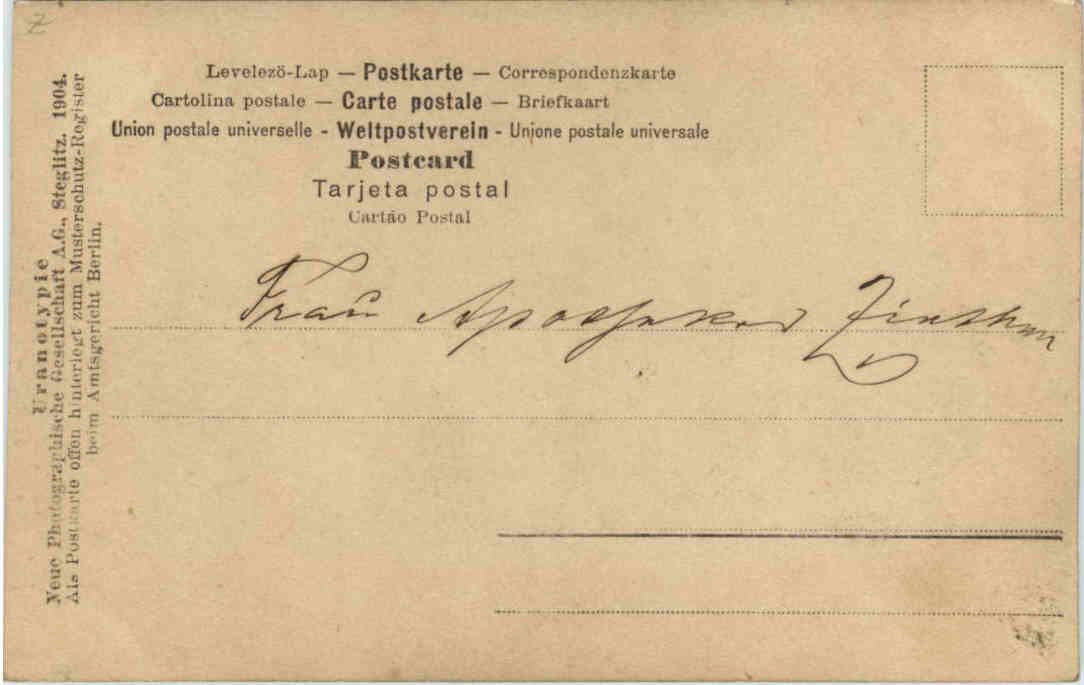 Z
Levelezö-Lap — Postkarte — Correspondenzkarte
Cartolina postale — Carte postale — Briefkaart
Union postale universelle - Weltpostverein - Unione postale universale
Postcard
Tarjeta postal
Cartão Postal
Frau Apotheker
Uranotypie
Neue Photographische Gesellschaft A.G., Steglitz. 1904.
Als Postkarte offen hinterlegt zum Musterschutz-Register
beim Amtsgericht Berlin.